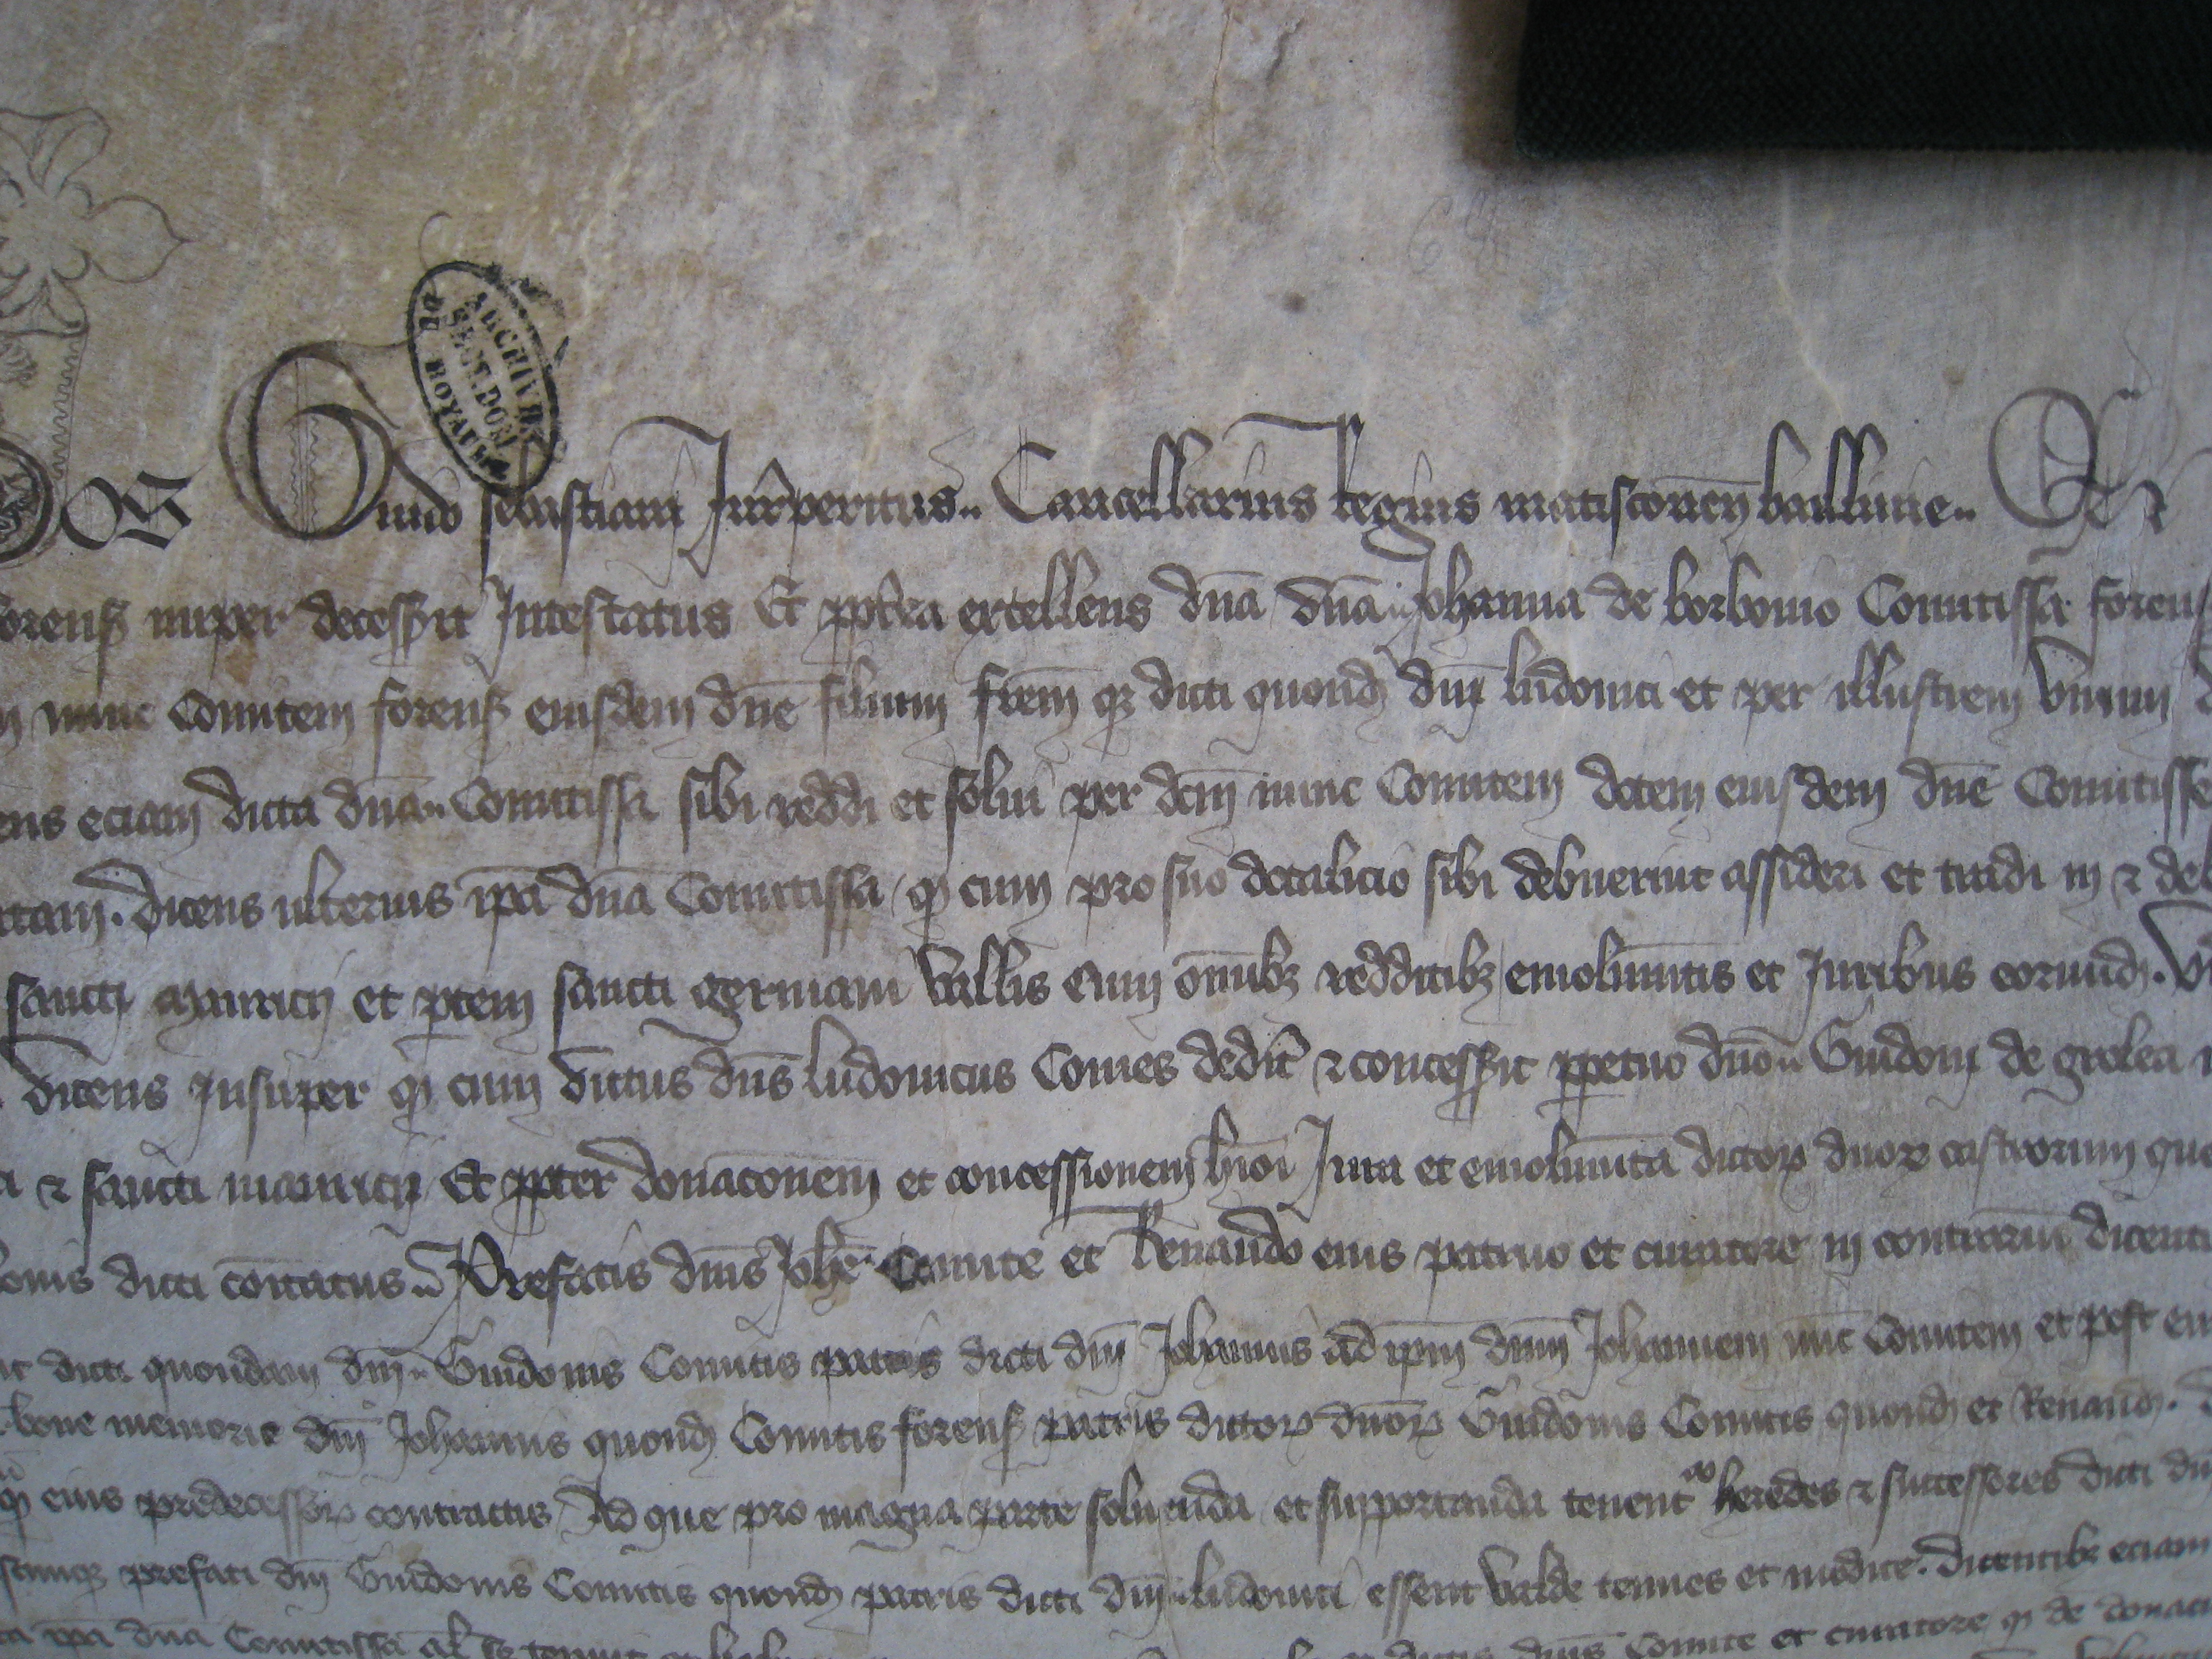 ARCHIVES
SECT. DOM.
DU ROYAUME
NOS Guido sebastiani Jur̄peritus Cancellarius Regius matisconen̄ baillivie Et
forens̄ nuper decessit Intestatus Et ppt̄ea excellens dn̄a dn̄a Johanna de borbonio Comitissa forens̄
nunc Comitem forens̄ eiusdem dn̄e filium frēm qz dicti quond̄ dn̄i ludovici et per illustrem virum
eciam dicta dn̄a Comitissa sibi reddi et solui per dcm̄ nunc Comitem dotem eiusdem dn̄e Comitisse
dicens ulterius ip̄a dn̄a Comitissa qd̄ cum pro suo dotalicio sibi debuerint assideri et tradi in et
sancti mauricij et ptem sancti germani vallis cum om̄ibz redditibz emolumn̄tis et Juribus eorund̄.
dicens Insuper qd̄ cum dictus dn̄s ludovicus Comes dedit et concessit ppetuo dn̄o Guidoni de grolea
et sancti mauricij Et ppter donacōnem et concessionem hmōi Jura et emolumn̄ta dictoꝝ duoꝝ castrorum
dicti comitatus Prefatis dn̄is Johē Comite et Renaudo eius patruo et curatore in contrariū
dicti quondam dn̄i Guidonis Comitis patris dicti dn̄i Johannis ad ip̄m dn̄m Johannem nūc Comitem et post
bone memorie dn̄i Johannis quond̄ Comitis forens̄ patris dictoꝝ dn̄oꝝ Guidonis Comitis quond̄ et Renaud̄.
eius predecessoꝝ contractis Ad que pro magna parte soluenda et supportanda tenent heredes et successores dicti
prefati dn̄i Guidonis Comitis quond̄ patris dicti dn̄i ludovici essent valde tenues et modice. dicentibz eciam
ip̄a dn̄a Comitissa dn̄is Comite et curatore qd̄ de